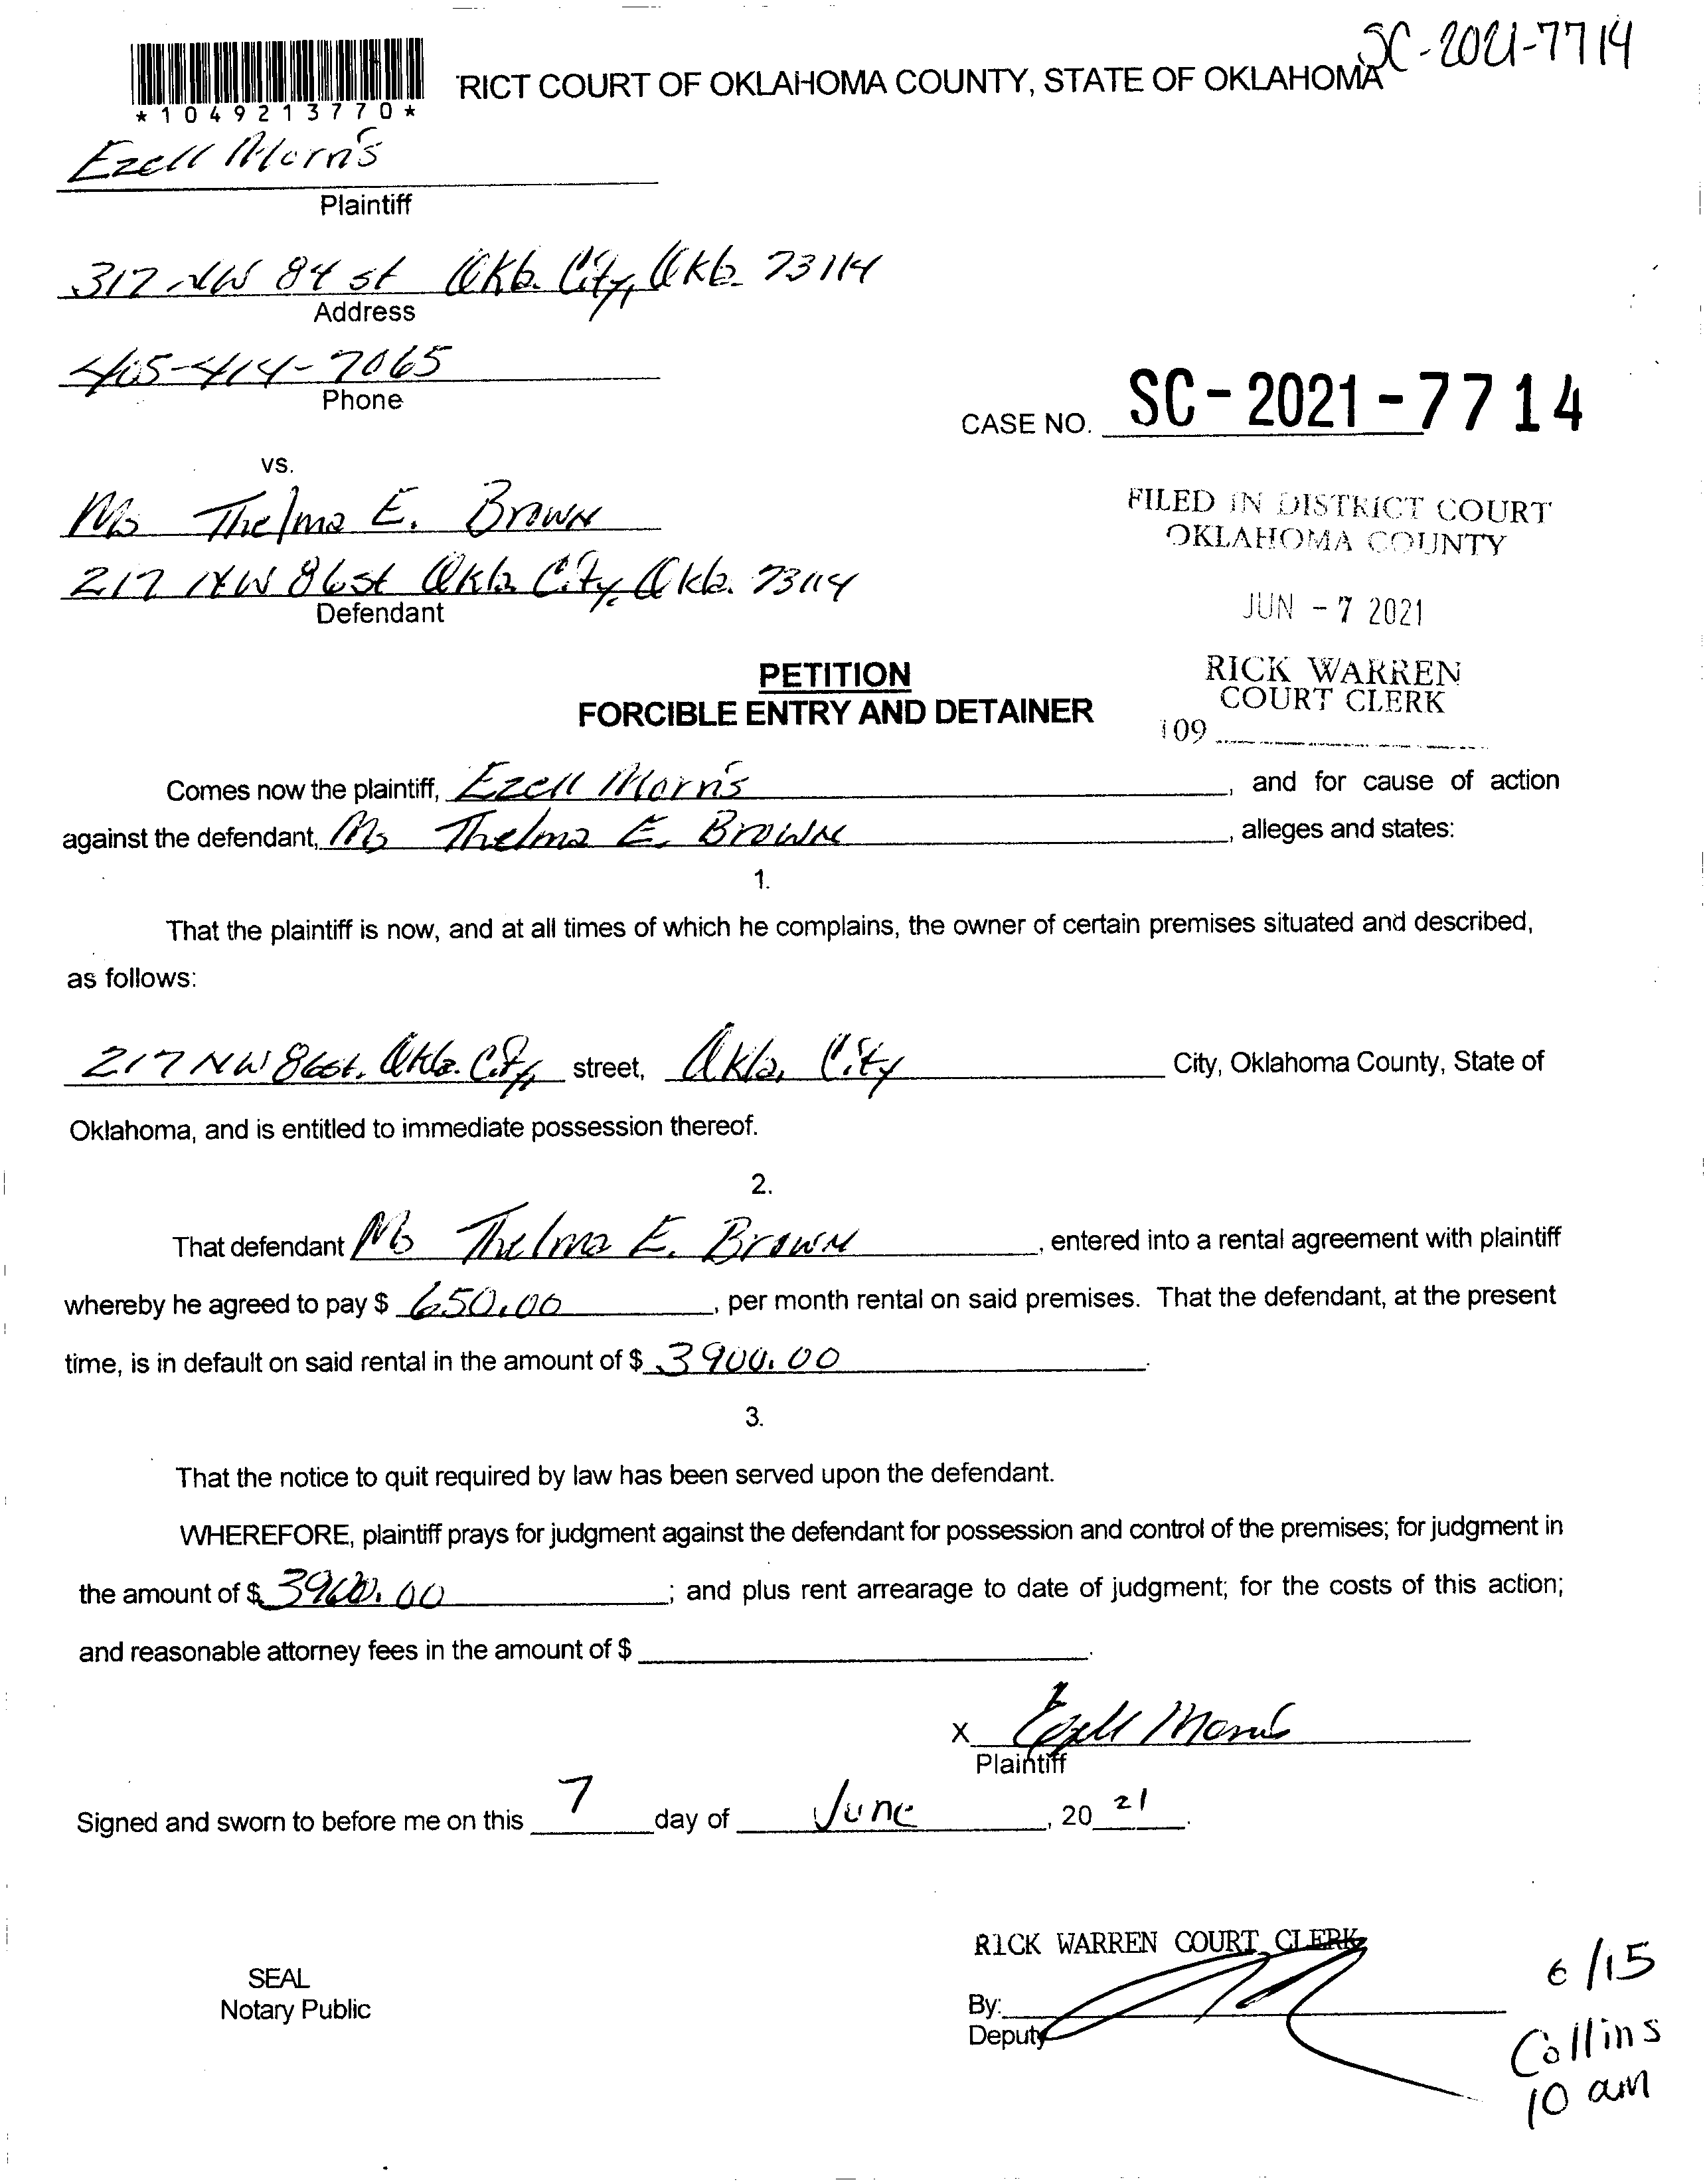 SC-2021-7714
RICT COURT OF OKLAHOMA COUNTY, STATE OF OKLAHOMA
*1049213770*
Ezell Morris
Plaintiff
317 NW 84 st Okla. City, Okla. 73114
Address
405-414-7065
Phone
CASE NO. SC-2021-7714
vs.
Ms Thelma E. Brown
217 NW 86st Okla City, Okla. 73114
Defendant
FILED IN DISTRICT COURT
OKLAHOMA COUNTY
JUN -7 2021
RICK WARREN
COURT CLERK
109
PETITION
FORCIBLE ENTRY AND DETAINER
Comes now the plaintiff, Ezell Morris, and for cause of action
against the defendant, Ms Thelma E. Brown, alleges and states:
1.
That the plaintiff is now, and at all times of which he complains, the owner of certain premises situated and described,
as follows:
217 NW 86st. Okla. City, street, Okla, City City, Oklahoma County, State of
Oklahoma, and is entitled to immediate possession thereof.
2.
That defendant Ms Thelma E. Brown, entered into a rental agreement with plaintiff
whereby he agreed to pay $ 650.00, per month rental on said premises. That the defendant, at the present
time, is in default on said rental in the amount of $ 3900.00.
3.
That the notice to quit required by law has been served upon the defendant.
WHEREFORE, plaintiff prays for judgment against the defendant for possession and control of the premises; for judgment in
the amount of $; and plus rent arrearage to date of judgment; for the costs of this action;
and reasonable attorney fees in the amount of $.
X Ezell Morris
Plaintiff
Signed and sworn to before me on this 7 day of June, 20 21.
RICK WARREN COURT CLERK
SEAL
Notary Public
By:
Deputy
6/15
Collins
10 am